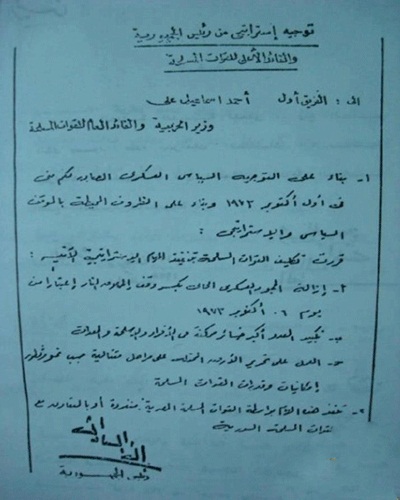 توجيه إستراتيجى من رئيس الجمهورية
والقائد الأعلى للقوات المسلحة
إلى : الفريق أول أحمد اسماعيل على
وزير الحربية والقائد العام للقوات المسلحة
١- بناء على التوجيه السياسى العسكرى الصادر لكم منى
فى أول أكتوبر ١٩٧٣ وبناء على الظروف المحيطة بالموقف
السياسى والإستراتيجى :
قررت تكليف القوات المسلحة بتنفيذ المهام الإستراتيجية الآتية :
أ- إزالة الجمود العسكرى الحالى بكسر وقف إطلاق النار إعتباراً من
يوم ٠٦ أكتوبر ١٩٧٣
ب- تكبيد العدو أكبر خسائر ممكنة فى الأفراد والأسلحة والمعدات
جـ- العمل على تحرير الأرض المحتلة على مراحل متتالية حسب نمو وتطور
إمكانيات وقدرات القوات المسلحة
٢- تنفذ هذه المهام بواسطة القوات المسلحة المصرية منفردة أو بالتعاون مع
القوات المسلحة السورية
أنور السادات
رئيس الجمهورية